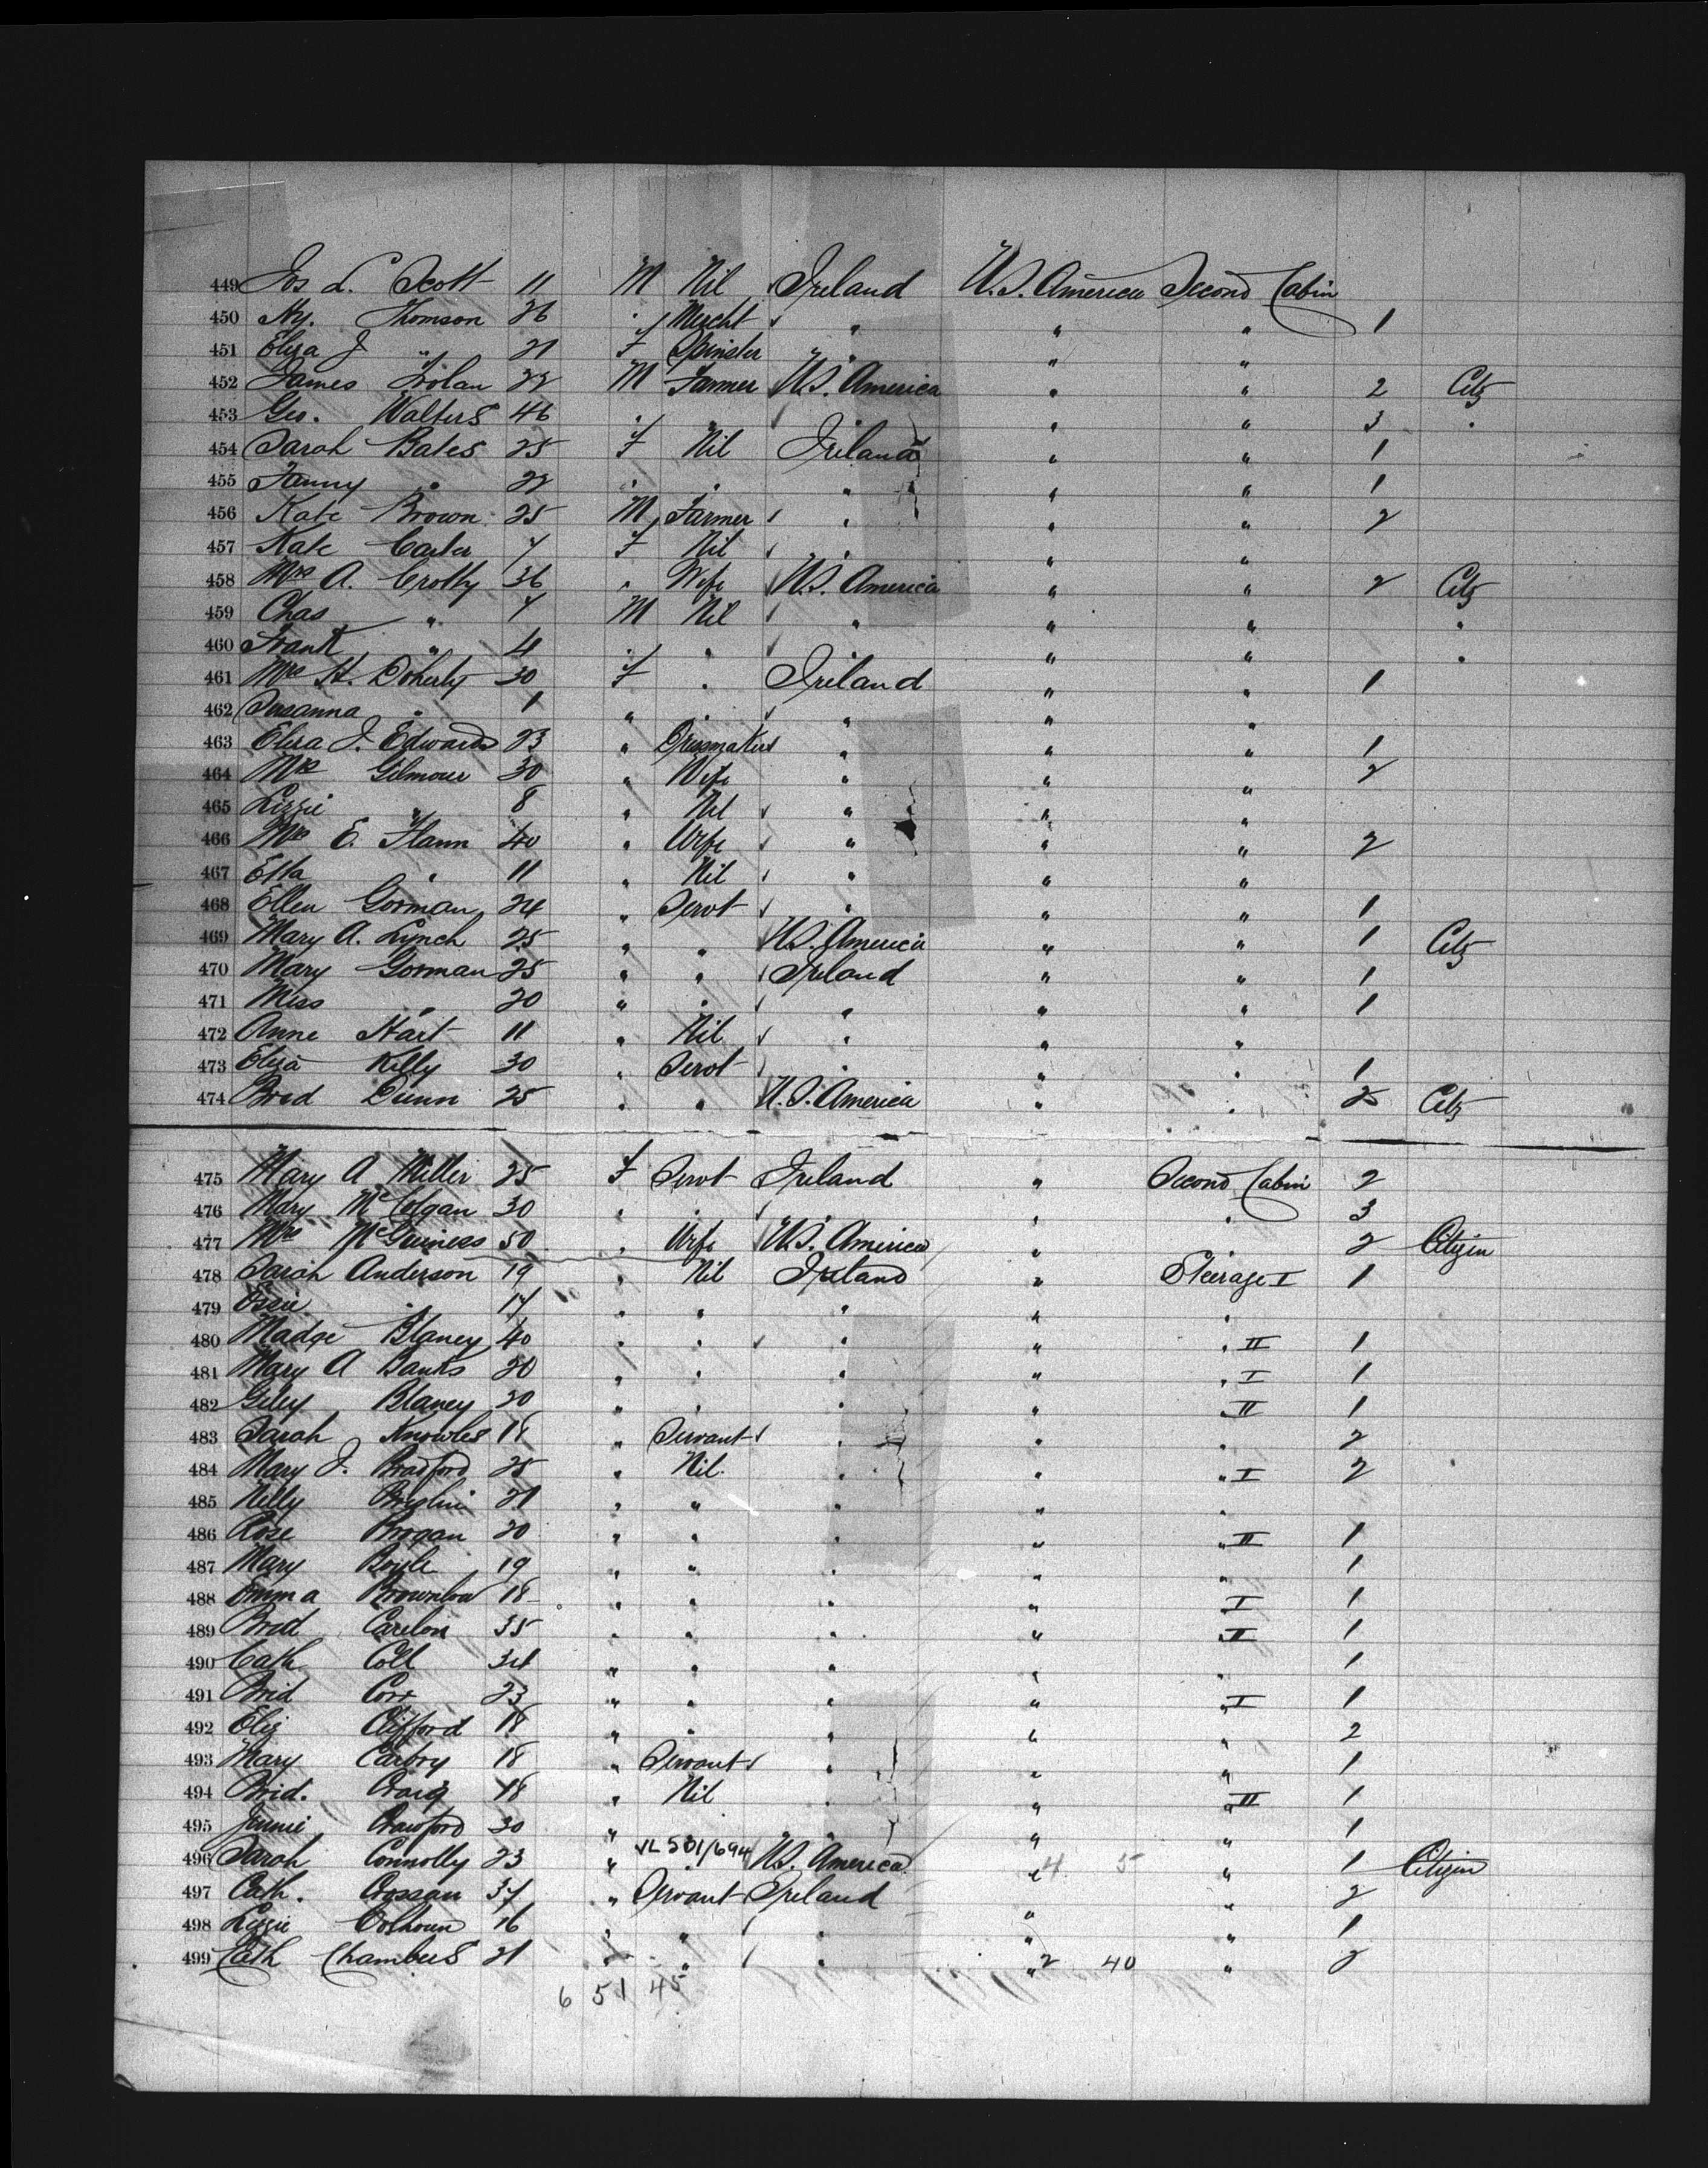 449 Jos L. Scott 11 M Nil Ireland U.S. America Second Cabin
450 Hy. Thomson 26 " Mercht " " " 1
451 Eliza J " 21 F Spinster " " "
452 James Nolan 22 M Farmer U.S. America " " 2 Citz
453 Geo. Walters 46 " " " " " 3 "
454 Sarah Bates 25 F Nil Ireland " " 1
455 Fanny " 22 " " " " " 1
456 Kate Brown 25 M Farmer " " " 2
457 Kate Carter 7 F Nil " " "
458 Mrs A. Crotty 36 " Wife U.S. America " " 2 Citz
459 Chas " 7 M Nil " " " "
460 Frank " 4 " " " " "
461 Mrs H. Doherty 30 F " Ireland " " 1
462 Susanna " 1 " " " " "
463 Eliza J. Edwards 23 " Dressmaker " " " 1
464 Mrs Gilmour 30 " Wife " " " 2
465 Lizzie " 8 " Nil " " "
466 Mrs E. Hann 40 " Wife " " " 2
467 Etta " 11 " Nil " " "
468 Ellen Gorman 24 " Servt " " " 1
469 Mary A. Lynch 25 " " U.S. America " " 1 Citz
470 Mary Gorman 25 " " Ireland " " 1
471 Miss " 20 " " " " " 1
472 Anne Hart 11 " Nil " " "
473 Eliza Kelly 30 " Servt " " " 1
474 Brid Dunn 25 " " U.S. America " " 2 Citz
475 Mary A Miller 25 F Servt Ireland " Second Cabin 2
476 Mary McColgan 30 " " " " " 3
477 Mrs McGuiness 50 " Wife U.S. America " " 2 Citizin
478 Sarah Anderson 19 " Nil Ireland " Steerage I 1
479 Essie " 17 " " " " "
480 Madge Blaney 40 " " " " " II 1
481 Mary A Banks 20 " " " " " I 1
482 Blaney 20 " " " " " II 1
483 Sarah Knowles 18 " Servant " " " 2
484 Mary J. Bradford 25 " Nil. " " " I 2
485 Nelly Breslin 21 " " " " "
486 Rose Brogan 20 " " " " " II 1
487 Mary Boyle 19 " " " " " 1
488 Emma Brownlow 18 " " " " I 1
489 Brid Carlon 35 " " " " " II 1
490 Cath Coll 34 " " " " " 1
491 Brid Corr 23 " " " " " I 1
492 Eliz Clifford 18 " " " " " 2
493 Mary Carbry 18 " Servant " " " 1
494 Brid. Craig 18 " Nil " " " II 1
495 Jennie Crawford 30 " " " " " 1
VL 501/694
496 Sarah Connolly 23 " " U.S. America " 4 5 " 1 Citizin
497 Cath. Crossan 37 " Servant Ireland " " 2
498 Lizzie Colhoun 16 " " " " " 1
499 Cath Chambers 21 " " " " 2 40 " 2
6 51 45